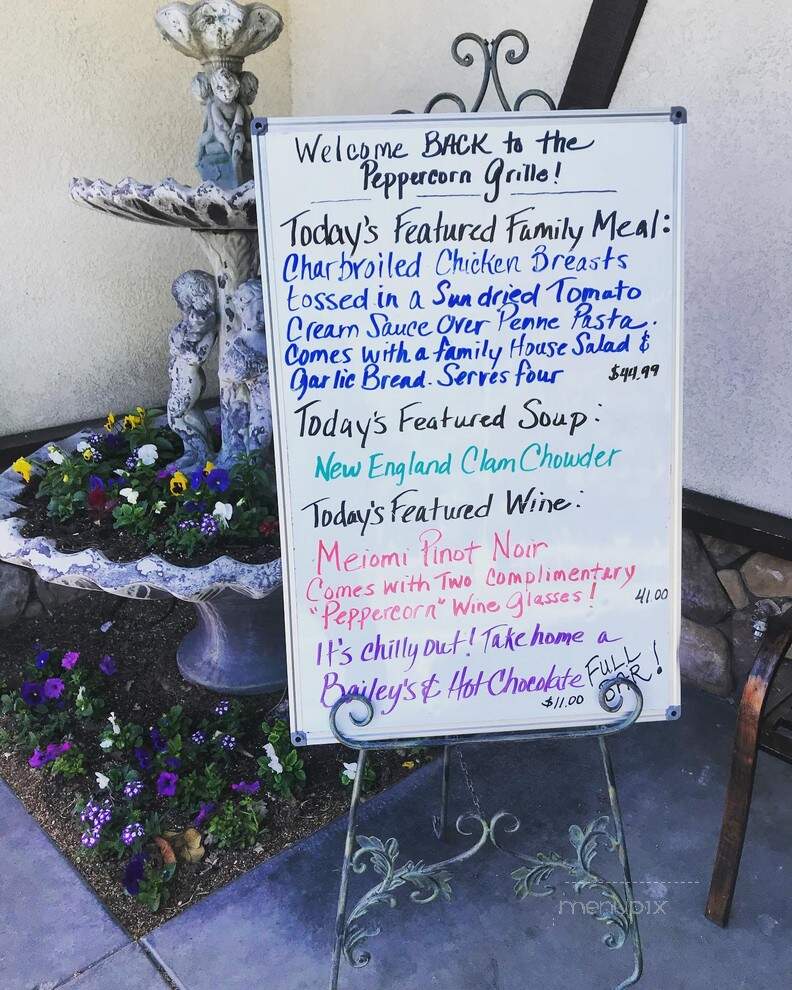 Welcome BACK to the
Peppercorn Grille!
Today's Featured Family Meal:
Charbroiled Chicken Breasts
tossed in a Sun dried Tomato
Cream Sauce Over Penne Pasta.
Comes with a family House Salad &
Garlic Bread. Serves four $44.99
Today's Featured Soup:
New England Clam Chowder
Today's Featured Wine:
Meiomi Pinot Noir
Comes with Two complimentary
"Peppercorn" Wine Glasses! 41.00
It's chilly out! Take home a
Bailey's & Hot Chocolate FULL
$11.00 BAR!
menupix